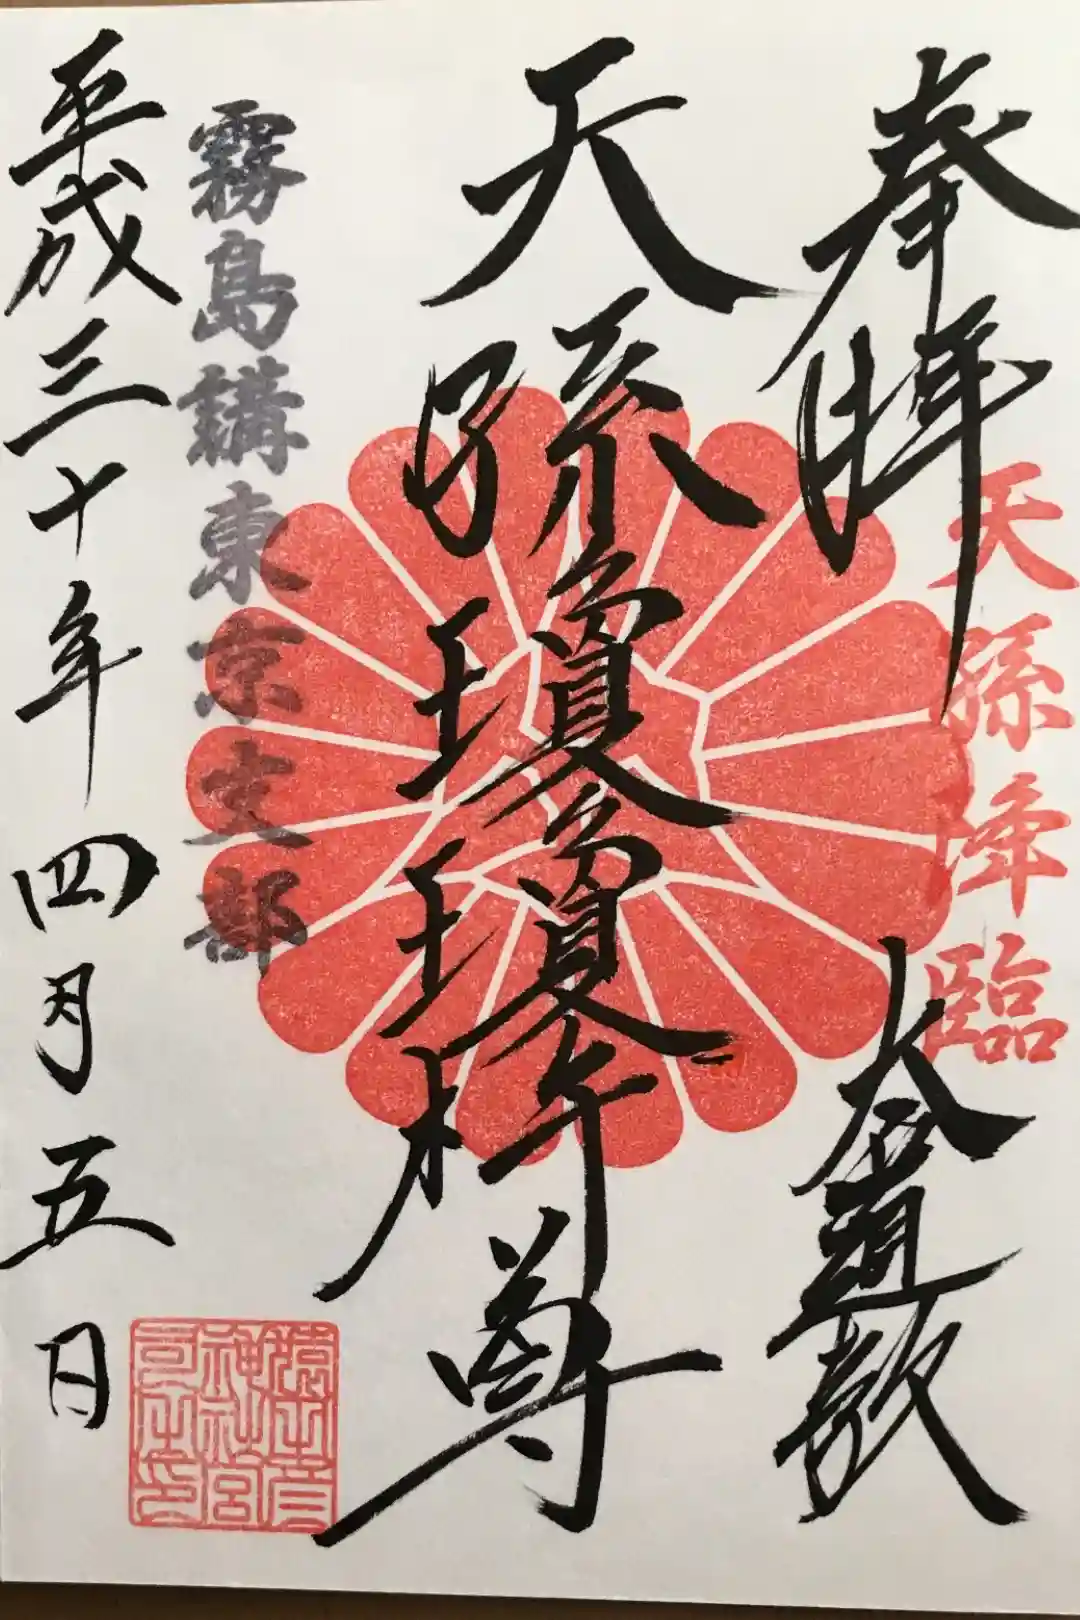 奉拝
天孫降臨
天孫瓊瓊杵尊
霧島講東京支部
平成三十年四月五日
猿田彦
神社宮
司之印